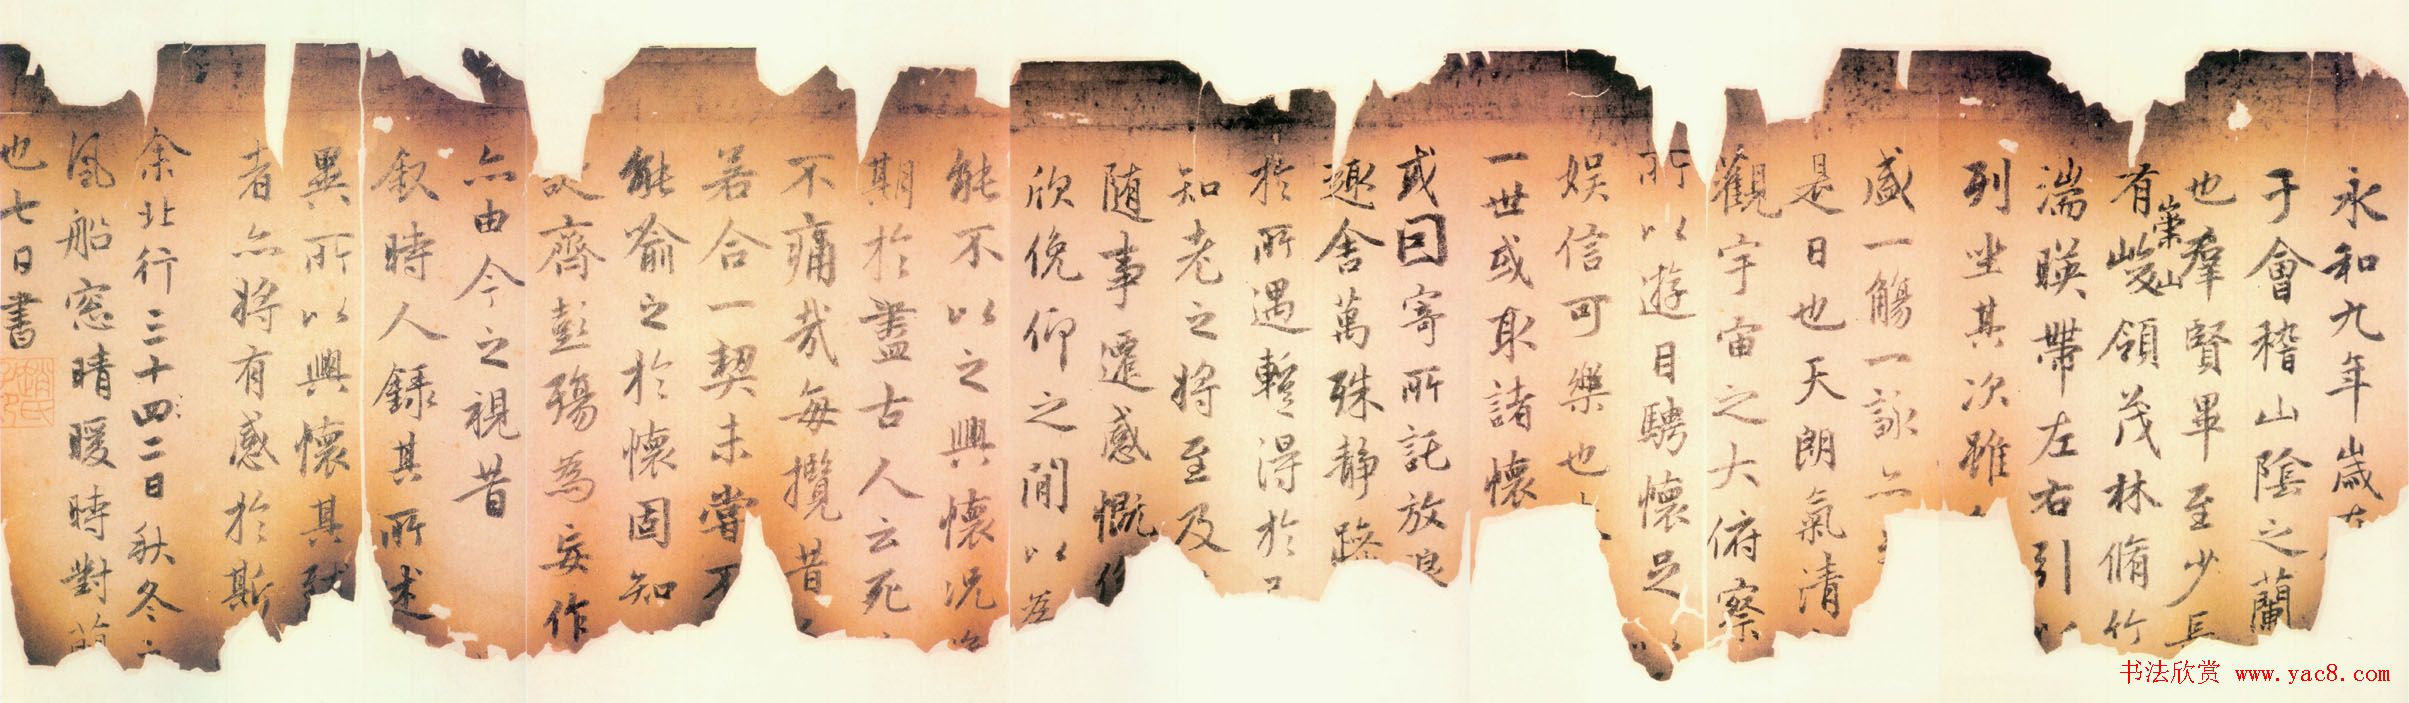 永和九年歲
于會稽山陰之蘭
也羣賢畢至少長
有崇山峻領茂林脩竹
湍暎帶左右引以
列坐其次雖
盛一觴一詠亦
是日也天朗氣清
觀宇宙之大俯察
所以遊目騁懷足以
娛信可樂也
一世或取諸懷
或因寄所託放浪
趣舍萬殊靜躁
於所遇蹔得於
知老之將至及
隨事遷感慨係
欣俛仰之閒以為
能不以之興懷況脩
期於盡古人云死
不痛哉每攬昔
若合一契未嘗不
能喻之於懷固知
誕齊彭殤為妄作
亦由今之視昔
敘時人錄其所述
異所以興懷其致
者亦將有感於斯
余北行三十四二日秋冬
風船窓晴暖時對蘭
也七日書
趙氏
书法欣赏 www.yac8.com